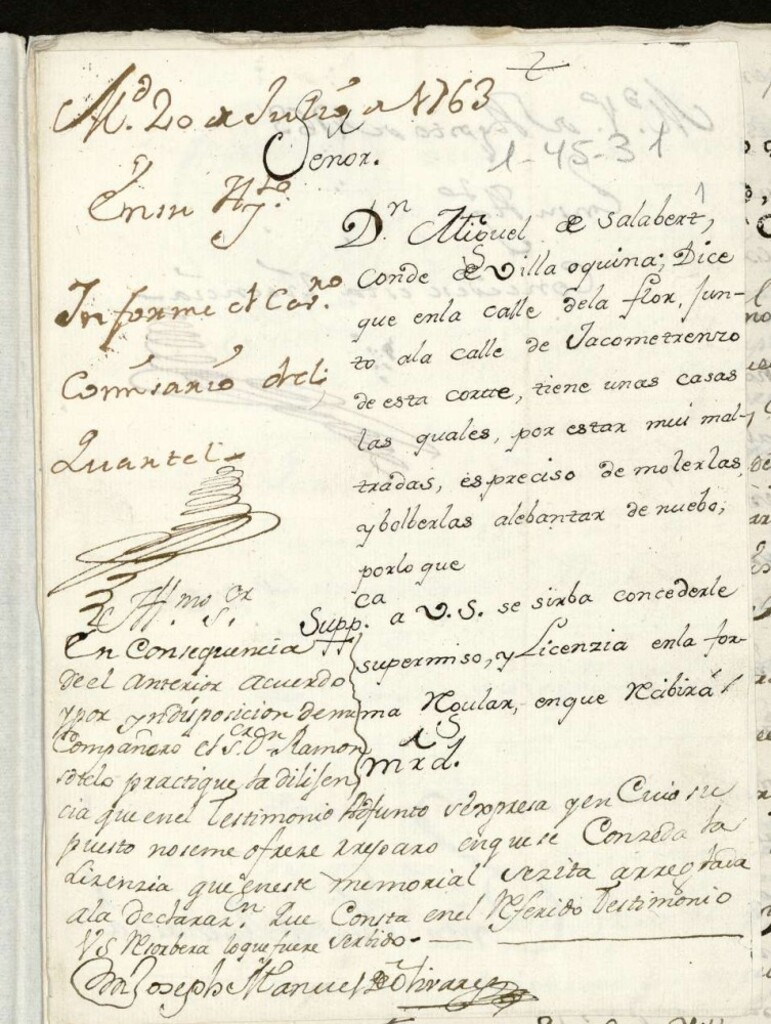 M.d 20 de Julio de 1763
Señor.
1-45-31
En su Ay.to
Informe el Cav.ro
Comisario del
Quartel
D.n Miguel de Salabert,
Conde de Villa oquina; Dice
que enla calle dela flor, jun-
to ala calle de Jacometrenzo
de esta corte, tiene unas casas
las quales, por estar mui mal-
tradas, es preciso de molerlas
y bolberlas alebantar de nuebo,
por lo que
Supp.ca a V.S. se sirba concederle
supermiso, y Licenzia enla for-
ma Regular, enque Recibirá
mrd.
Ill.mo S.or
En Consequencia
deel anterior acuerdo
y por yndisposicion de mi
Compañero el S.or D.n Ramon
sotelo practique la dilijen
cia que enel Testimonio adjunto se expresa y en Cuio su
puesto noseme ofreze reparo enque se Conzeda la
Lizenzia que eneste memorial sezita arreglada
ala declaraz.n que Consta enel Referido Testimonio
VS Resolbera loque fuere serbido.
Dn Joseph Manuel de Olivares